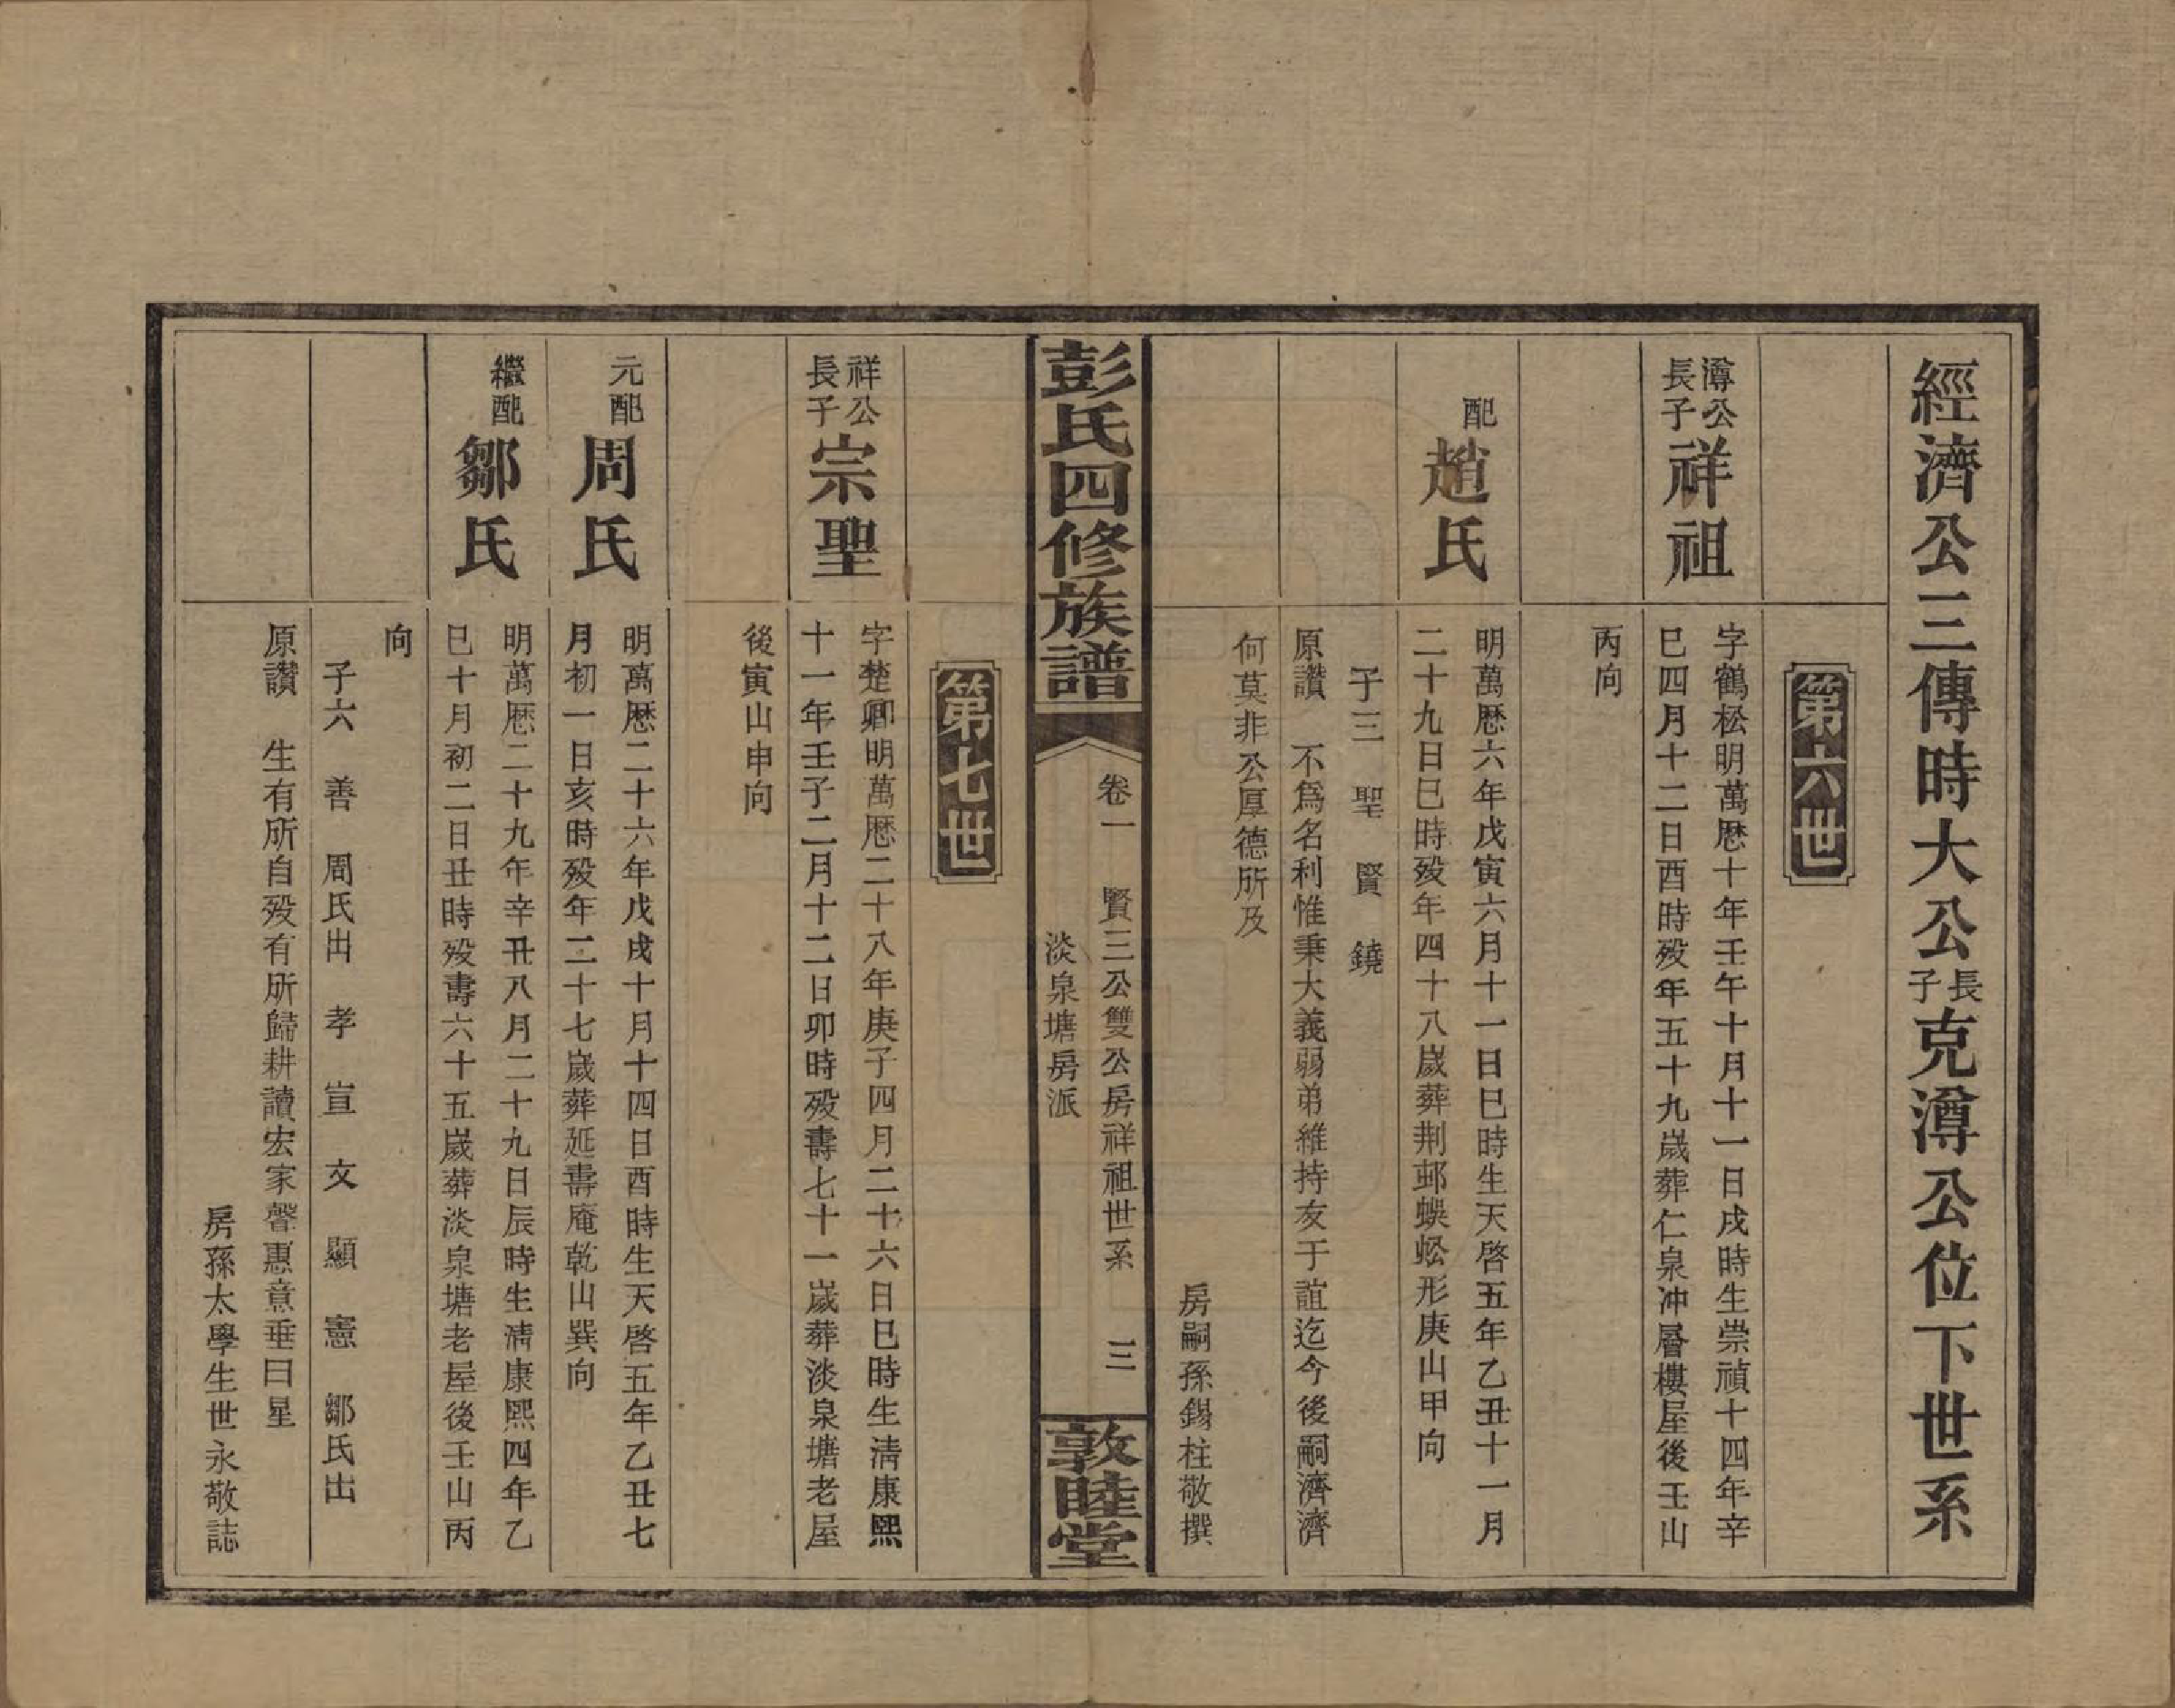 經濟公三傳時大公長子克澊公位下世系
第六世
澊公長子祥祖
字鶴松明萬厯十年壬午十月十一日戌時生崇禎十四年辛
巳四月十二日酉時殁年五十九嵗葬仁泉冲層樓屋後壬山
丙向
配趙氏
明萬厯六年戊寅六月十一日巳時生天啓五年乙丑十一月
二十九日巳時殁年四十八嵗葬荆邨蜈蚣形庚山甲向
子三 聖 賢 鐃
原讚 不爲名利惟秉大義弱弟維持友于誼迄今後嗣濟濟
何莫非公厚德所及
房嗣孫錫柱敬撰
彭氏四修族譜
卷一 賢三公雙公房祥祖世系 三
淡泉塘房派
敦睦堂
第七世
祥公長子宗聖
字楚卿明萬厯二十八年庚子四月二十六日巳時生淸康熙
十一年壬子二月十二日卯時殁壽七十一嵗葬淡泉塘老屋
後寅山申向
元配周氏
明萬厯二十六年戊戌十月十四日酉時生天啓五年乙丑七
月初一日亥時殁年二十七嵗葬延壽庵乾山巽向
繼配鄒氏
明萬厯二十九年辛丑八月二十九日辰時生淸康熙四年乙
巳十月初二日丑時殁壽六十五嵗葬淡泉塘老屋後壬山丙
向
子六 善 周氏出 孝 宣 文 顯 憲 鄒氏出
原讚 生有所自殁有所歸耕讀宏家聲惠意垂曰星
房孫太學生世永敬誌